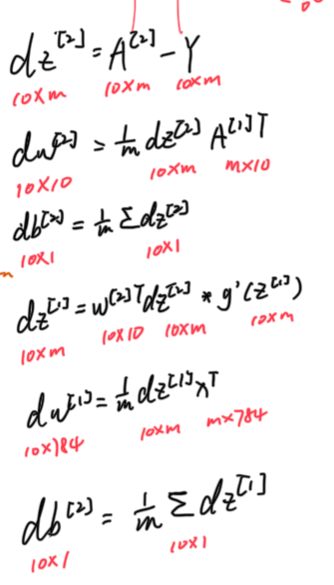 dz^[2] = A^[2] - Y
10×m 10×m 10×m
dw^[2] = 1/m dz^[2] A^[1]T
10×10 10×m m×10
db^[2] = 1/m Σ dz^[2]
10×1 10×1
dz^[1] = w^[2]T dz^[2] * g'(z^[1])
10×m 10×10 10×m 10×m
dw^[1] = 1/m dz^[1] x^T
10×784 10×m m×784
db^[2] = 1/m Σ dz^[1]
10×1 10×1